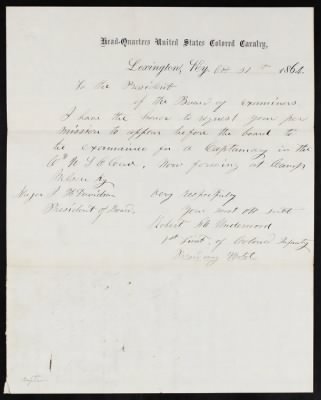 Head-Quarters United States Colored Cavalry,
Lexington, Ky. Oct 31st 1864.
To the President
of the Board of examiners
I have the honor to request your per
mission to appear before the board to
be examined for a Captaincy in the
6th U S C Cav. Now forming at Camp
Nelson Ky
Major J. H. Davidson
President of Board.
Very respectfully
Your most obt
Robert Underwood
1st Lieut. of Colored Infantry